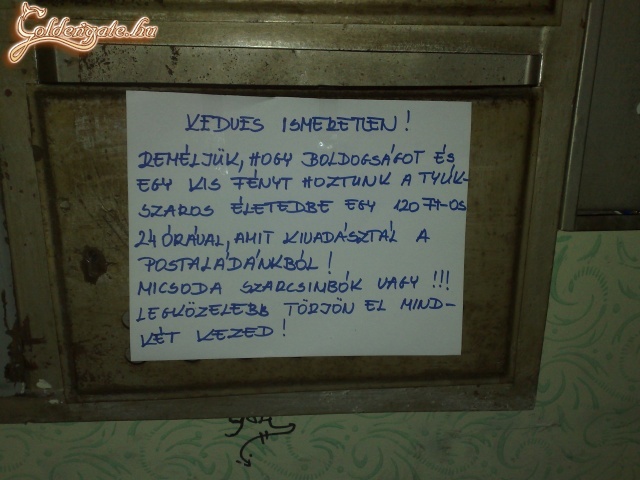 Goldengate.hu
KEDVES ISMERETLEN!
REMÉLJÜK, HOGY BOLDOGSÁGOT ÉS
EGY KIS FÉNYT HOZTUNK A TYÚK-
SZAROS ÉLETEDBE EGY 120 Ft-OS
24 ÓRÁVAL, AMIT KIVADÁSZTÁL A
POSTALÁDÁNKBÓL!
MICSODA SZARCSIMBÓK VAGY!!!
LEGKÖZELEBB TÖRJÖN EL MIND-
KÉT KEZED!